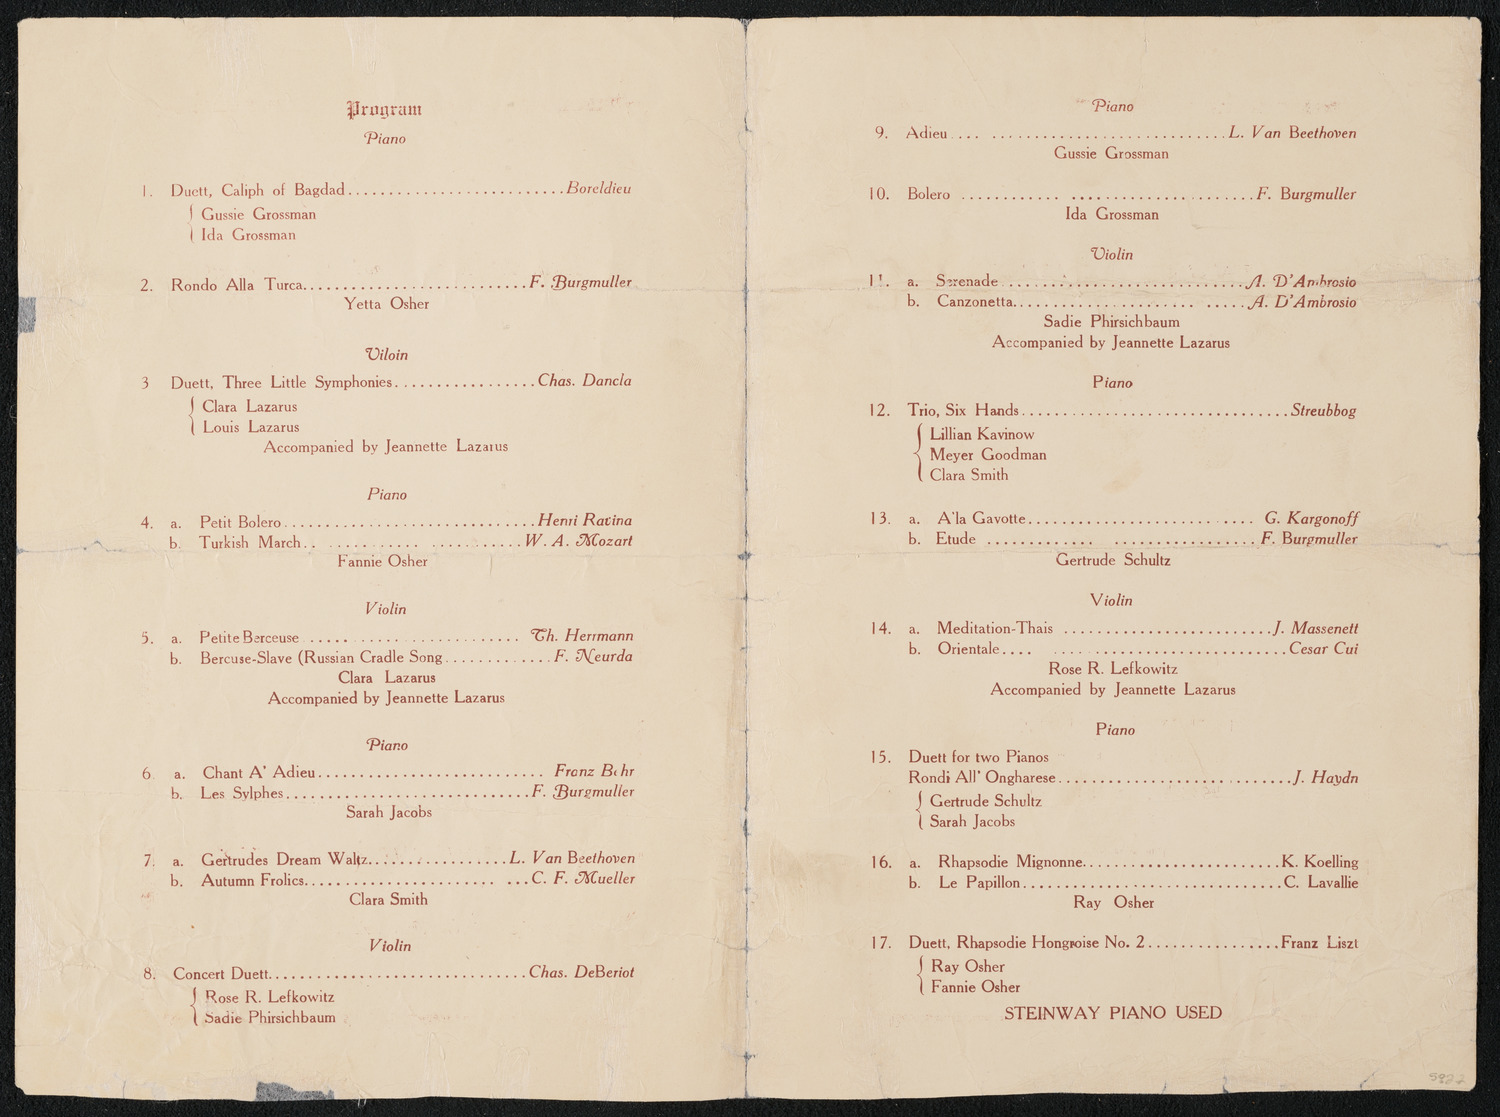 Program
Piano
1. Duett, Caliph of Bagdad..........................Boreldieu
Gussie Grossman
Ida Grossman
2. Rondo Alla Turca...........................F. Burgmuller
Yetta Osher
Viloin
3 Duett, Three Little Symphonies.................Chas. Dancla
Clara Lazarus
Louis Lazarus
Accompanied by Jeannette Lazarus
Piano
4. a. Petit Bolero..............................Henri Ravina
b. Turkish March.. ........... ...........W. A. Mozart
Fannie Osher
Violin
5. a. Petite Berceuse ..... .................... Th. Herrmann
b. Bercuse-Slave (Russian Cradle Song.............F. Neurda
Clara Lazarus
Accompanied by Jeannette Lazarus
Piano
6 a. Chant A' Adieu........................... Franz Behr
b. Les Sylphes.............................F. Burgmuller
Sarah Jacobs
7. a. Gertrudes Dream Waltz.................L. Van Beethoven
b. Autumn Frolics....................... ...C. F. Mueller
Clara Smith
Violin
8. Concert Duett...............................Chas. DeBeriot
Rose R. Lefkowitz
Sadie Phirsichbaum
Piano
9. Adieu .... ............................L. Van Beethoven
Gussie Grossman
10. Bolero ............ ......................F. Burgmuller
Ida Grossman
Violin
11. a. Serenade .............................A. D'Ambrosio
b. Canzonetta...................... .....A. D'Ambrosio
Sadie Phirsichbaum
Accompanied by Jeannette Lazarus
Piano
12. Trio, Six Hands................................Streubbog
Lillian Kavinow
Meyer Goodman
Clara Smith
13. a. A'la Gavotte........................... G. Kargonoff
b. Etude ............ .................F. Burgmuller
Gertrude Schultz
Violin
14. a. Meditation-Thais .........................J. Massenett
b. Orientale.... ............................Cesar Cui
Rose R. Lefkowitz
Accompanied by Jeannette Lazarus
Piano
15. Duett for two Pianos
Rondi All' Ongharese............................J. Haydn
Gertrude Schultz
Sarah Jacobs
16. a. Rhapsodie Mignonne........................K. Koelling
b. Le Papillon...............................C. Lavallie
Ray Osher
17. Duett, Rhapsodie Hongroise No. 2................Franz Liszt
Ray Osher
Fannie Osher
STEINWAY PIANO USED